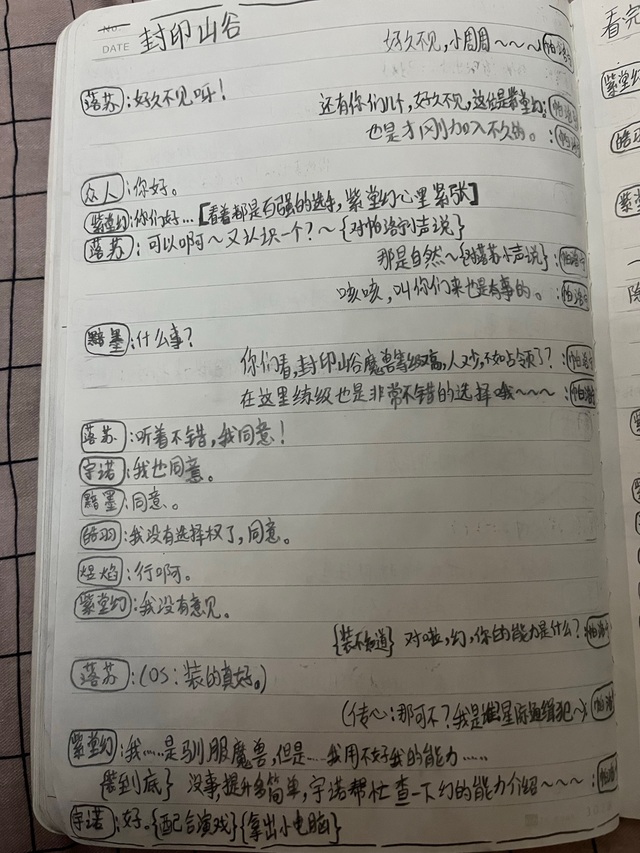 No.
DATE
封印山谷
好久不见,小周周~~~~帕洛宁
落苏:好久不见呀!
还有你们几个,好久不见,这位是紫堂幻:帕洛宁
也是才刚加入不久的。:帕洛宁
众人:你好。
紫堂幻:你们好…【看着都是百强的选手,紫堂幻心里紧张】
落苏:可以啊~又认识一个?~{对帕洛宁小声说}
那是自然~{对落苏小声说}:帕洛宁
咳咳,叫你们来也是有事的。:帕洛宁
黯墨:什么事?
你们看,封印山谷魔兽等级高,人又少,不如占领了?:帕洛宁
在这里练级也是非常不错的选择哦~~~~:帕洛宁
落苏:听着不错,我同意!
宇诺:我也同意。
黯墨:同意。
皓羽:我没有选择权了,同意。
煜焰:行啊。
紫堂幻:我没有意见。
{装不知道} 对啦,幻,你的能力是什么?:帕洛宁
落苏:(OS:装的真好。)
(传心:那可不?我是星际通缉犯~):帕洛宁
紫堂幻:我……是驯服魔兽,但是……我用不好我的能力……
{装到底} 没事,提升多简单,宇诺帮忙查一下幻的能力介绍~~~~:帕洛宁
宇诺:好。{配合演戏}{拿出小电脑}
看完
紫堂幻
皓羽
紫堂